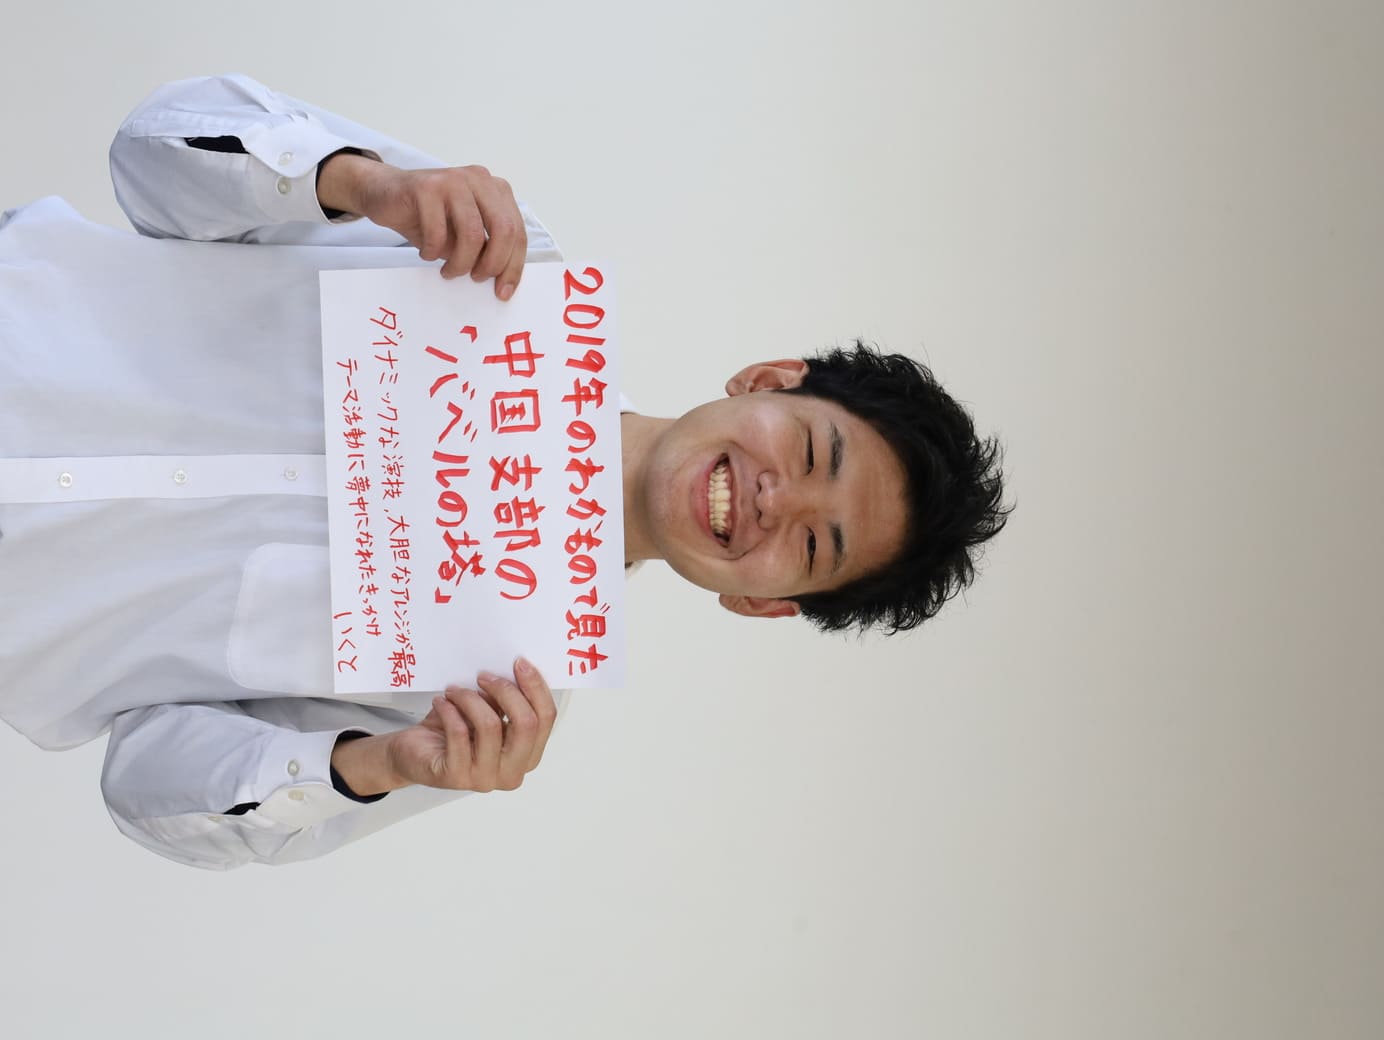 2019年のわかもので見た
中国支部の
「バベルの塔」
ダイナミックな演技,大胆なアレンジが最高
テーマ活動に夢中になれたきっかけ
いくと